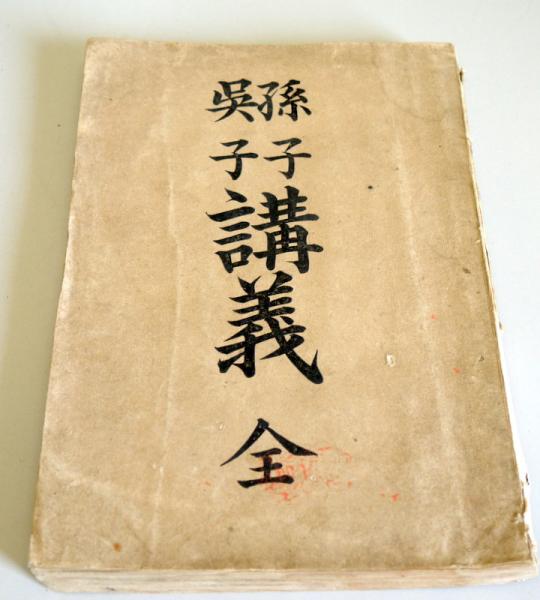 孫子
吳子
講義
全